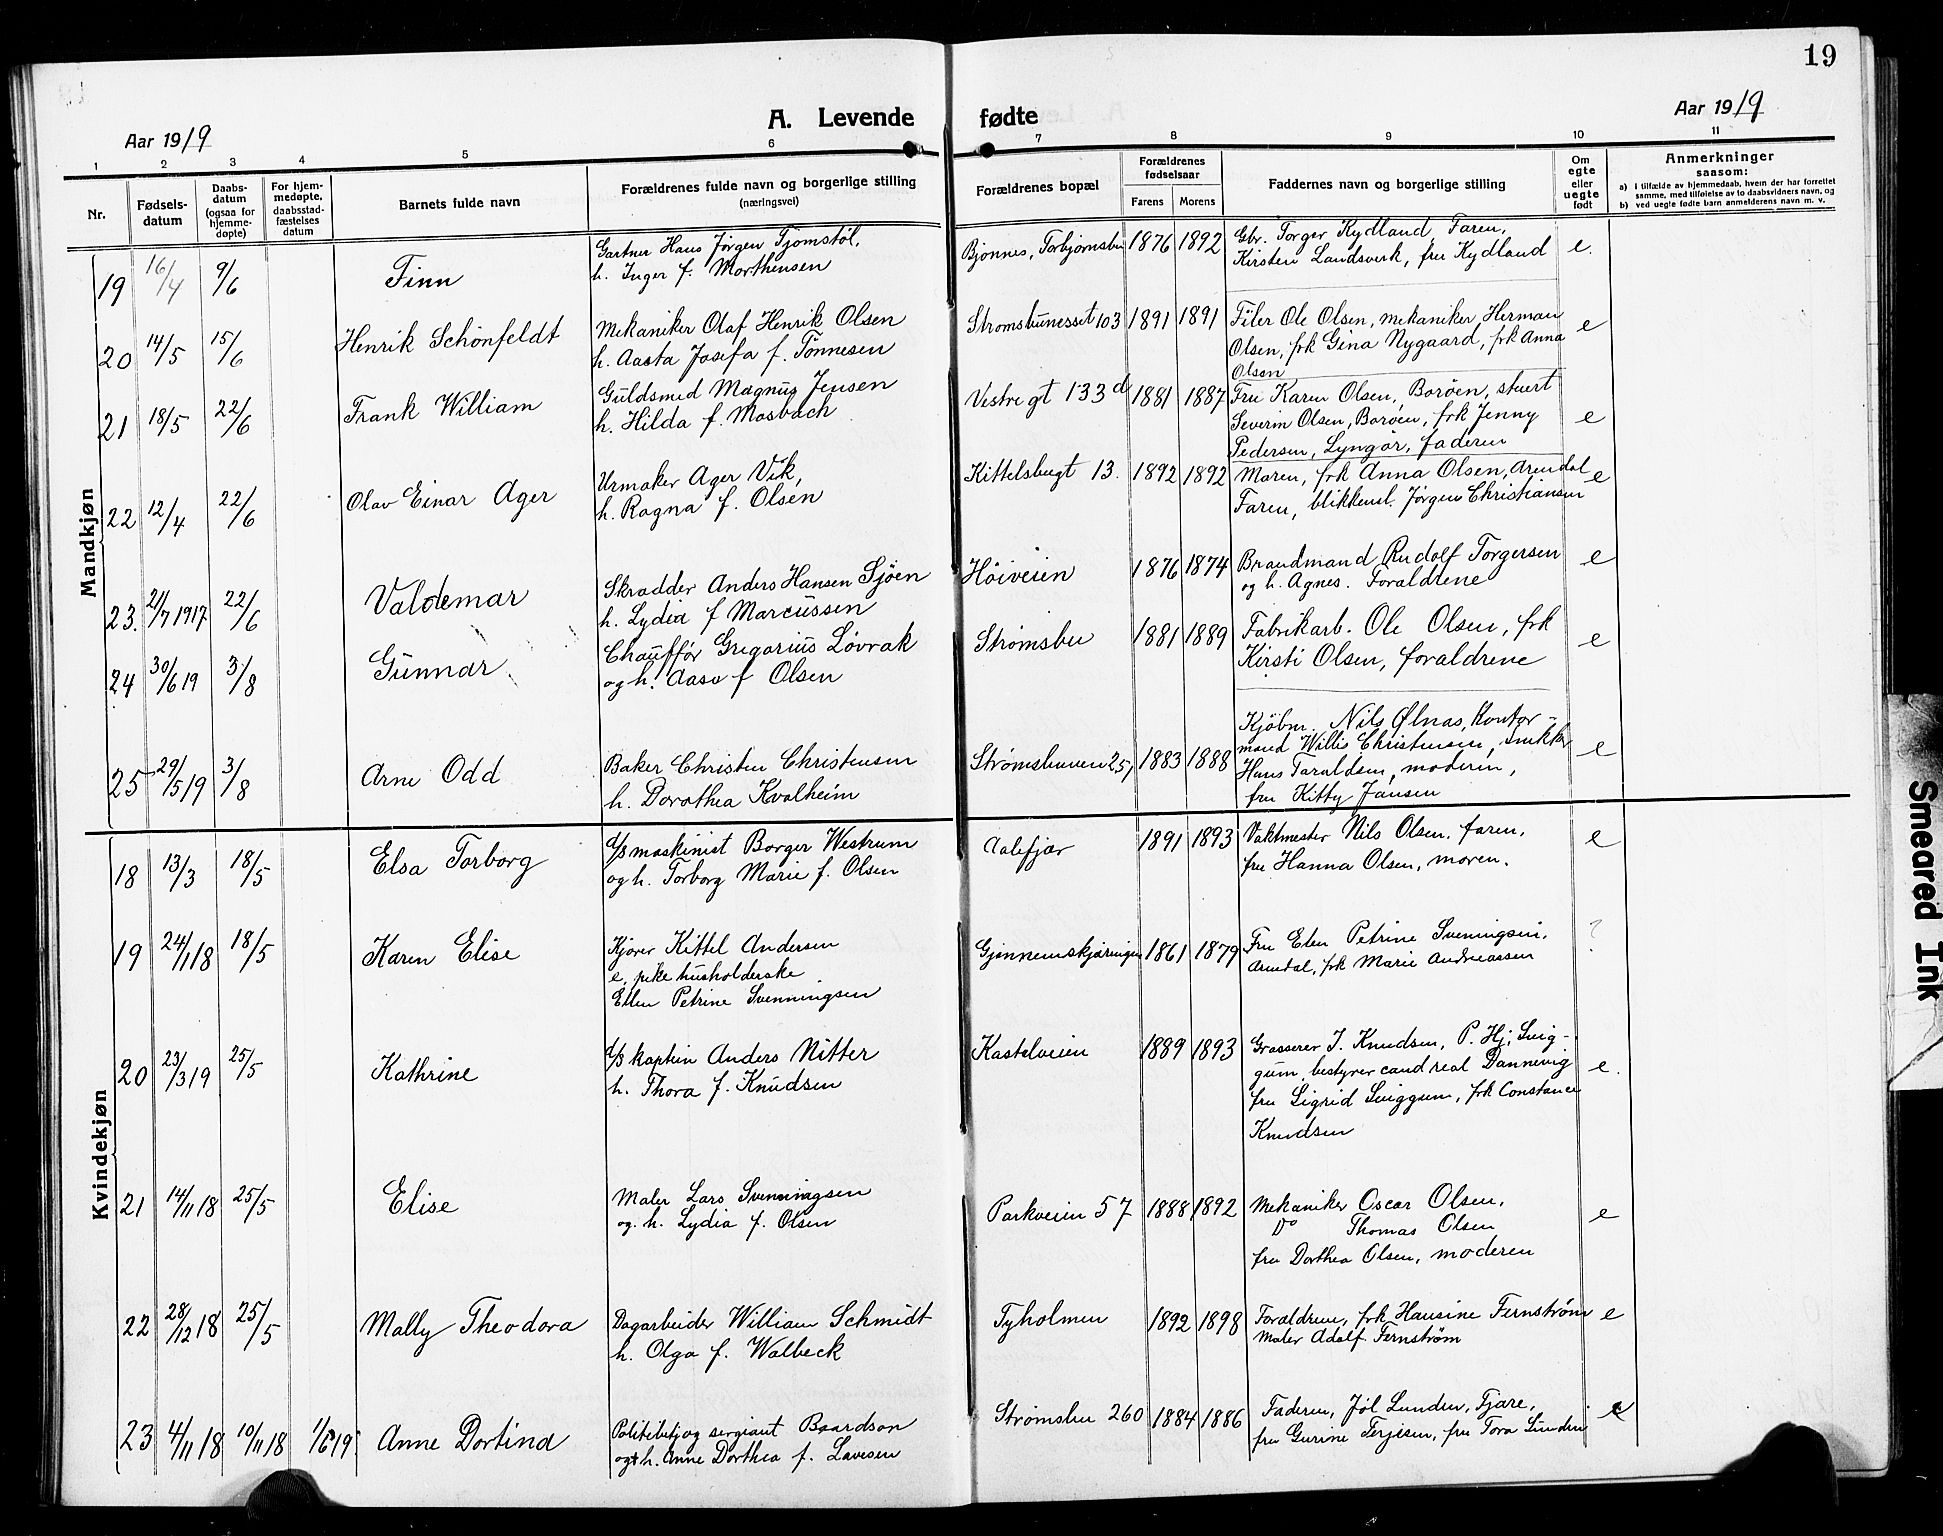 19
Aar 1919
A. Levende fødte
Aar 1919
1 2 3 4 5 6 7 8 9 10 11
Nr.
Fødsels-
datum
Daabs-
datum
(ogsaa for
hjemme-
døpte)
For hjem-
medøpte,
daabsstad-
fæstelses
datum
Barnets fulde navn
Forældrenes fulde navn og borgerlige stilling
(næringsvei)
Forældrenes bopæl
Forældrenes
fødselsaar
Farens Morens
Faddernes navn og borgerlige stilling
Om
egte
eller
uegte
født
Anmerkninger
saasom:
a) i tilfælde av hjemmedaab, hvem der har forrettet
samme, med tilføielse av to daabsvidners navn, og
b) ved uegte fødte barn anmelderens navn m. v.
Mandkjøn
19 16/4 9/6 Finn
Gartner Hans Jørgen Tjomstøl,
h. Inger f. Morthensen
Bjønnes, Torbjørnsbu 1876 1892
Gbr. Torger Kydland, Faren,
Kirsten Landsverk, fru Kydland
e.
20 14/5 15/6 Henrik Schönfeldt
Mekaniker Olaf Henrik Olsen
h. Aasta Josefa f. Tønnesen
Strømsbunesset 103 1891 1891
Filer Ole Olsen, mekaniker Herman
Olsen, frk Gina Nygaard, frk Anna
Olsen
e
21 18/5 22/6 Frank William
Guldsmed Magnus Jensen
h. Hilda f. Mosbach
Vestre gt 133 d 1881 1887
Fru Karen Olsen, Borøen, stuert
Severin Olsen, Borøen, frk Jenny
Pedersen, Lyngør, faderen
e
22 12/4 22/6 Olav Einar Ager
Urmaker Ager Vik,
h. Ragna f. Olsen
Kittelsbugt 13. 1892 1892
Moren, frk Anna Olsen, Arendal
Faren, blikkensl. Jørgen Christiansen
e
23. 21/7 1917 22/6 Valdemar
Skrædder Anders Hansen Sjöen
h. Lydia f Marcussen
Höiveien 1876 1874
Brandmand Rudolf Torgersen
og h. Agnes. Forældrene
e
24 30/6 19 3/8 Gunnar
Chauffør Gregorius Løvrak
og h. Aase f Olsen
Strømsbu 1881 1889
Fabrikarb. Ole Olsen, frk
Kirsti Olsen, forældrene
e
25 29/5 19 3/8 Arne Odd
Baker Christen Christensen
h. Dorothea Kvalheim
Strømsbuveien 251 1883 1888
Kjøbm. Nils Ølnas, Kontor-
mand Willis Christensen, snekker
Hans Taraldsen, moderen,
fru Kitty Jansen
e
Kvindekjøn
18 13/3 18/5 Elsa Torborg
d/s maskinist Borger Westrum
og h. Torborg Marie f. Olsen
Aalefjær 1891 1893
Vaktmester Nils Olsen, faren,
fru Hanna Olsen, moren.
e
19 24/1 18 18/5 Karen Elise
Kjører Kittel Andersen
e, pike husholderske
Ellen Petrine Svenningsen
Gjennemskjæringen 1861 1879
Fru Elen Petrine Sveningsen,
Arendal, frk Marie Andreassen
?
20 23/3 19 25/5 Kathrine
d/s kaptein Anders Nitter
h. Thora f. Knudsen
Kastelveien 1889 1893
Grosserer J. Knudsen, P. Hj. Svig-
gum, bestyrer cand real Dannevig
fru Sigrid Sviggum, frk Constance
Knudsen
e.
21 14/11 18 25/5 Elise
Maler Lars Svenningsen
og. h. Lydia f. Olsen
Parkveien 57 1888 1892
Mekaniker Oscar Olsen,
Do Thomas Olsen
fru Dorthea Olsen, moderen
e
22 28/12 18 25/5 Mally Theodora
Dagarbeider William Schmidt
h. Olga f. Walbeck
Tyholmen 1892 1898
Forældrene, frk Hansine Fernstrøm
Maler Adolf Fernstrøm
e
23 4/11 18 10/11 18 1/6 19 Anne Dortina
Politibetj og sergiant Baardson
og h. Anne Dorthea f. Lavesen
Strømsbu 260 1884 1886
Faderen, Jøl Lunden, Fjære,
fru Gurine Terjesen, fru Tora Lunden
e
Smeared Ink